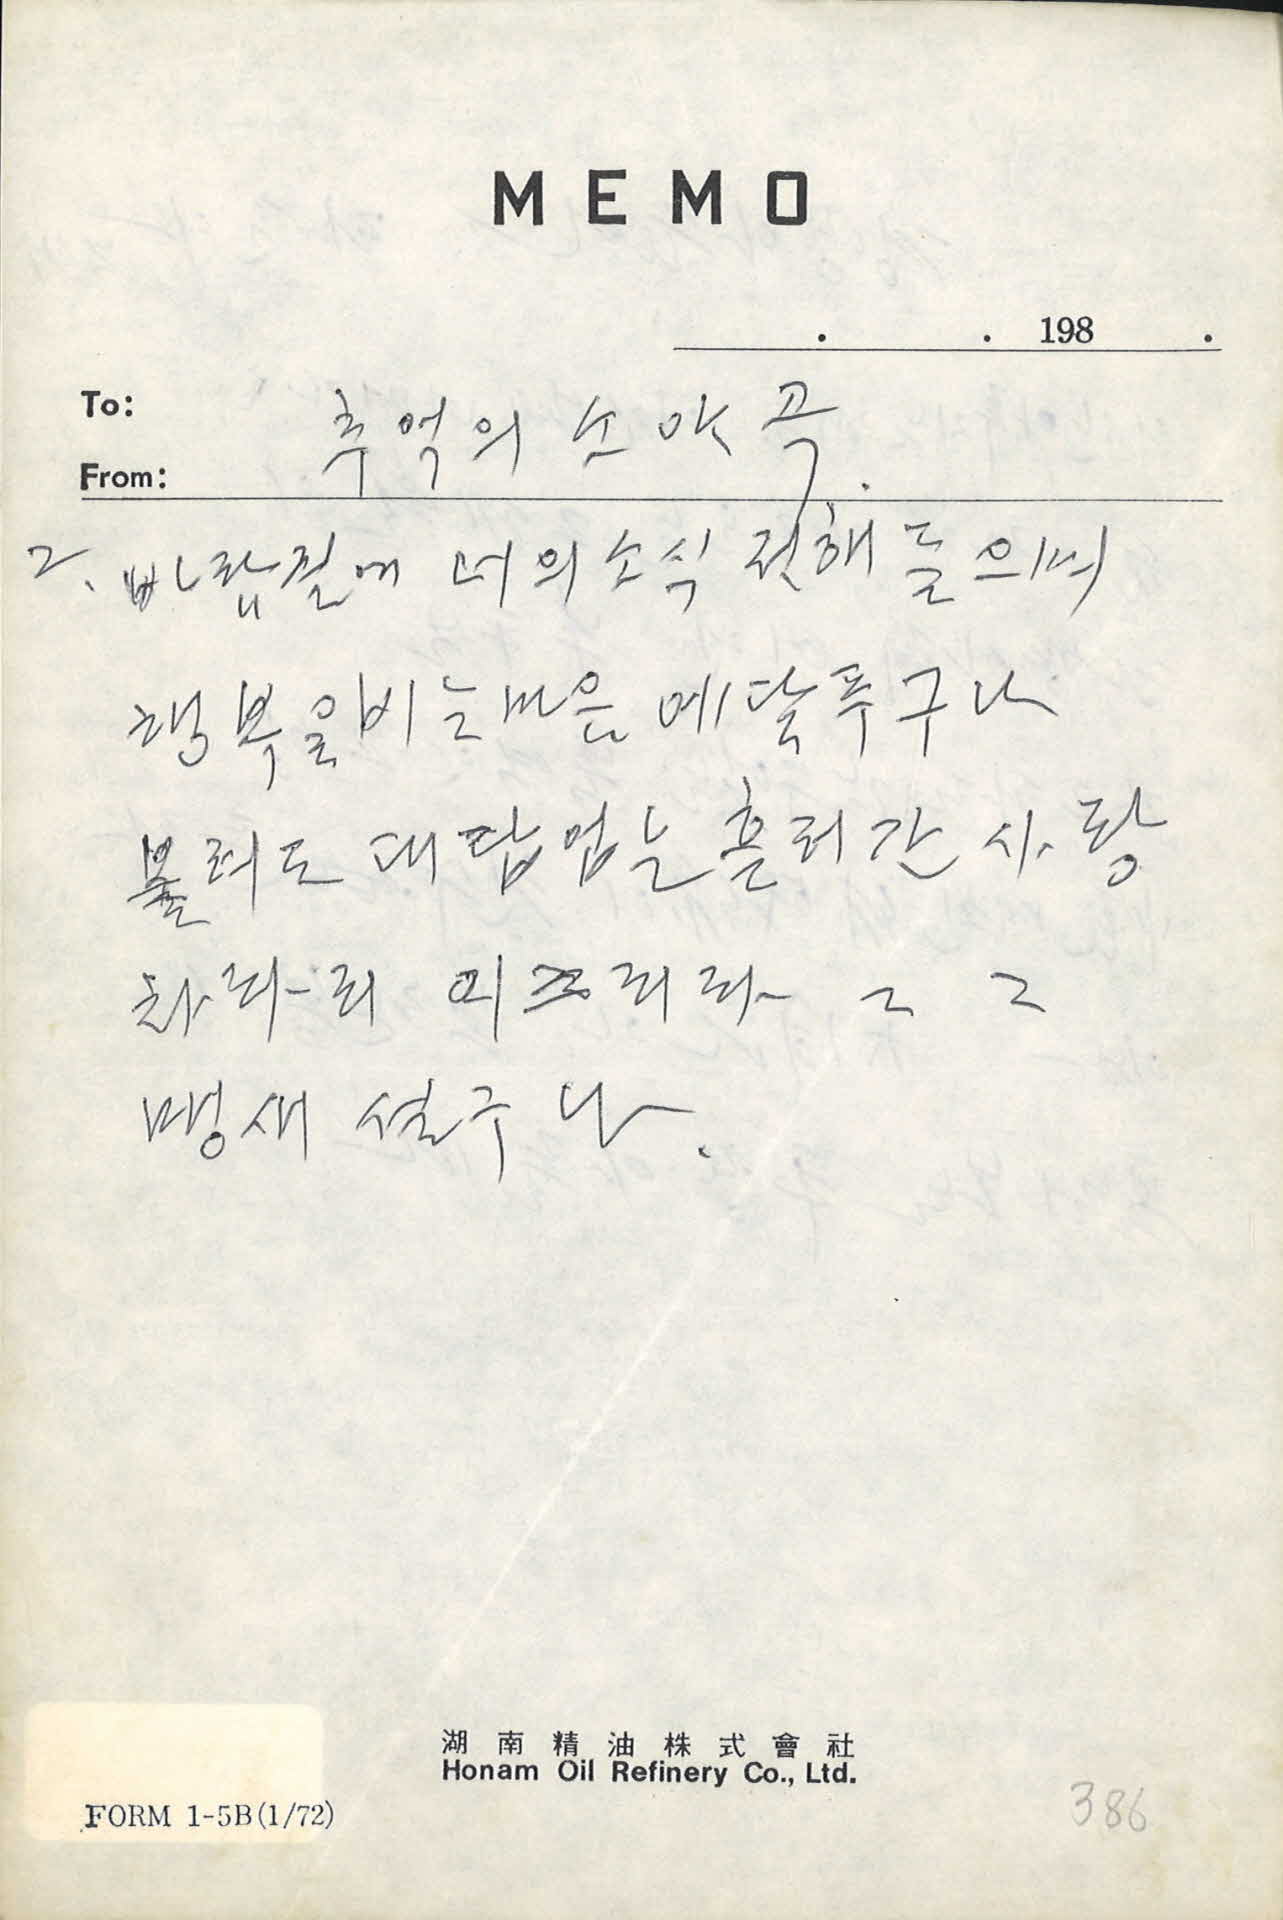 MEMO
. . 198 .
To:
추억의 소야곡.
From:
2. 바람결에 너의 소식 전해 들으며
행복을 비는 마음 에달푸구나
불러도 대답 업는 흘러간 사랑
차라리 이즈리라 ㄱ ㄱ
맹새 설구나.
湖南精油株式會社
Honam Oil Refinery Co., Ltd.
FORM 1-5B(1/72)
386